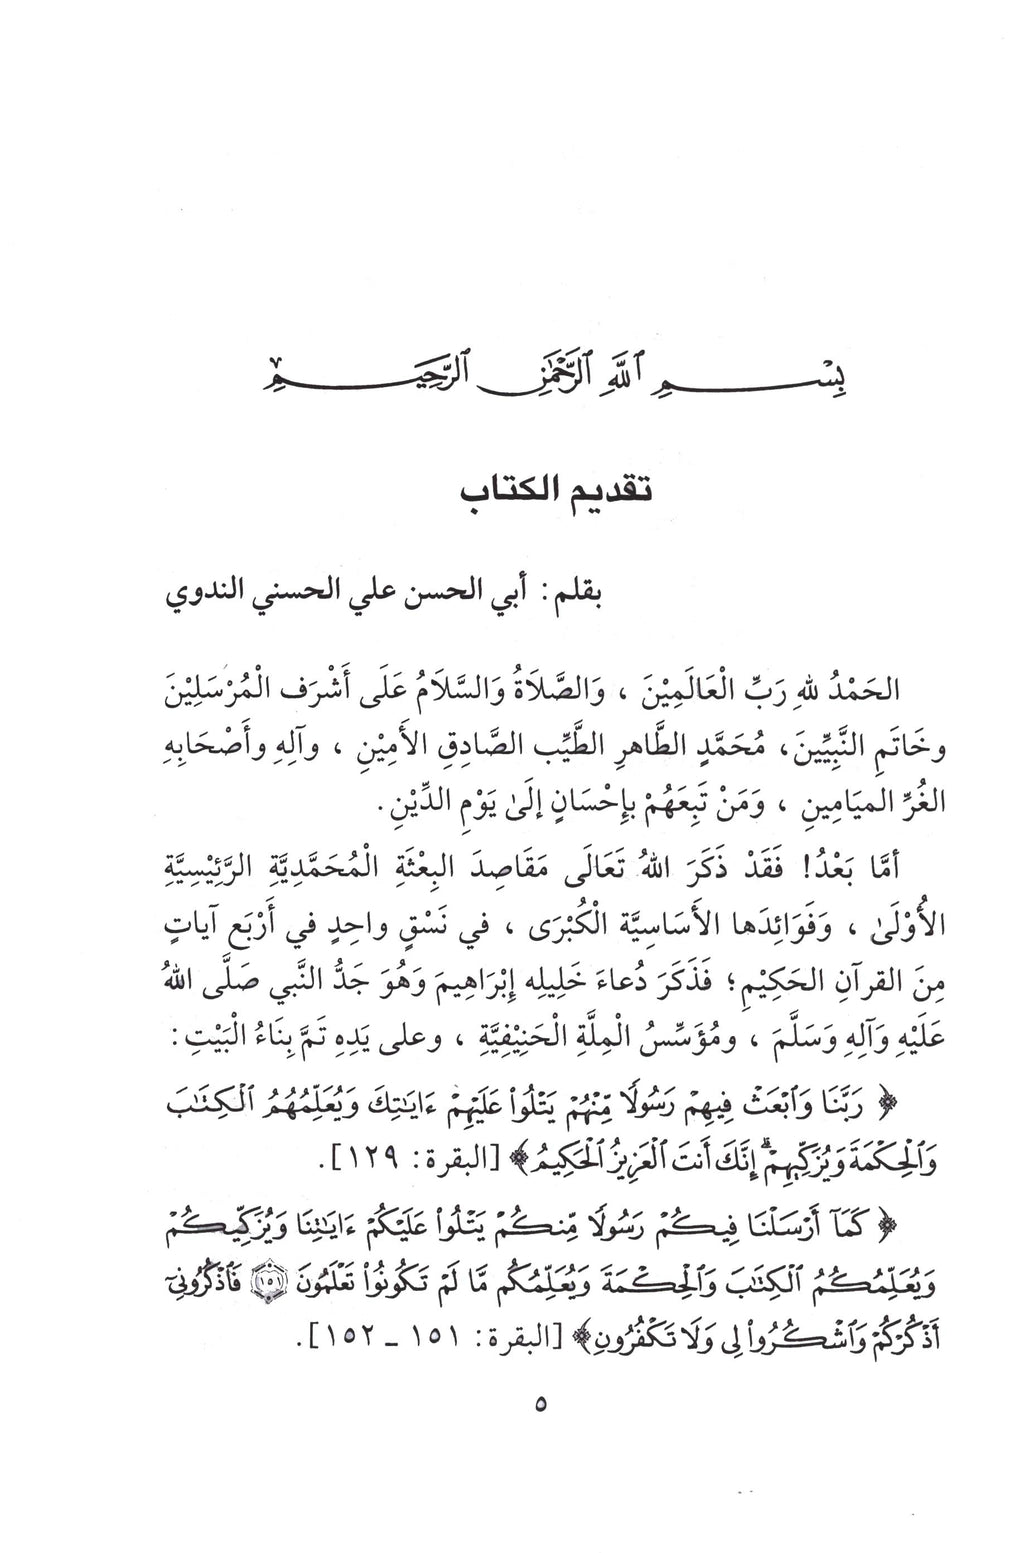 بِسْمِ ٱللَّهِ ٱلرَّحْمَٰنِ ٱلرَّحِيمِ
تقديم الكتاب
بقلم: أبي الحسن علي الحسني الندوي
الحَمْدُ للهِ رَبِّ الْعَالَمِيْنَ ، وَالصَّلَاةُ وَالسَّلَامُ عَلَى أَشْرَف الْمُرْسَلِيْنَ
وخَاتَمِ النَّبِيِّينَ، مُحَمَّدٍ الطَّاهرِ الطَّيِّب الصَّادِقِ الأَمِيْنِ ، وآلِهِ وأَصْحَابِهِ
الغُرِّ الميَامِينِ ، وَمَنْ تَبِعَهُمْ بإِحْسَانٍ إلَىٰ يَوْمِ الدِّيْنِ.
أمَّا بَعْدُ! فَقَدْ ذَكَرَ اللهُ تَعَالَى مَقَاصِدَ البِعْثَةِ الْمُحَمَّدِيَّةِ الرَّئِيْسِيَّةِ
الأُوْلَىٰ ، وَفَوَائِدَها الأَسَاسِيَّة الْكُبْرَى ، في نَسْقٍ واحِدٍ في أَرْبَع آياتٍ
مِنَ القرآنِ الحَكِيْمِ؛ فَذَكَرَ دُعاءَ خَلِيلِه إِبْرَاهِيمَ وَهُوَ جَدُّ النَّبي صَلَّى اللهُ
عَلَيْهِ وَآلِهِ وَسَلَّمَ ، ومُؤَسِّسُ الْمِلَّةِ الْحَنِيْفِيَّةِ ، وعلى يَدِهِ تَمَّ بِنَاءُ الْبَيْتِ:
﴿ رَبَّنَا وَٱبْعَثْ فِيهِمْ رَسُولًا مِّنْهُمْ يَتْلُوا۟ عَلَيْهِمْ ءَايَٰتِكَ وَيُعَلِّمُهُمُ ٱلْكِتَٰبَ
وَٱلْحِكْمَةَ وَيُزَكِّيهِمْ ۚ إِنَّكَ أَنتَ ٱلْعَزِيزُ ٱلْحَكِيمُ ﴾ [البقرة: ١٢٩].
﴿ كَمَآ أَرْسَلْنَا فِيكُمْ رَسُولًا مِّنكُمْ يَتْلُوا۟ عَلَيْكُمْ ءَايَٰتِنَا وَيُزَكِّيكُمْ
وَيُعَلِّمُكُمُ ٱلْكِتَٰبَ وَٱلْحِكْمَةَ وَيُعَلِّمُكُم مَّا لَمْ تَكُونُوا۟ تَعْلَمُونَ ﴿١٥١﴾ فَٱذْكُرُونِىٓ
أَذْكُرْكُمْ وَٱشْكُرُوا۟ لِى وَلَا تَكْفُرُونِ ﴾ [البقرة: ١٥١ ـ ١٥٢].
٥